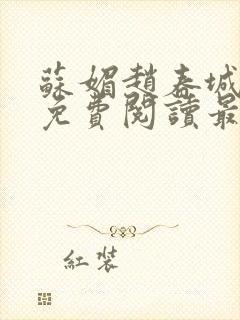 蘇媚趙春城
免費閱讀最
紅裝